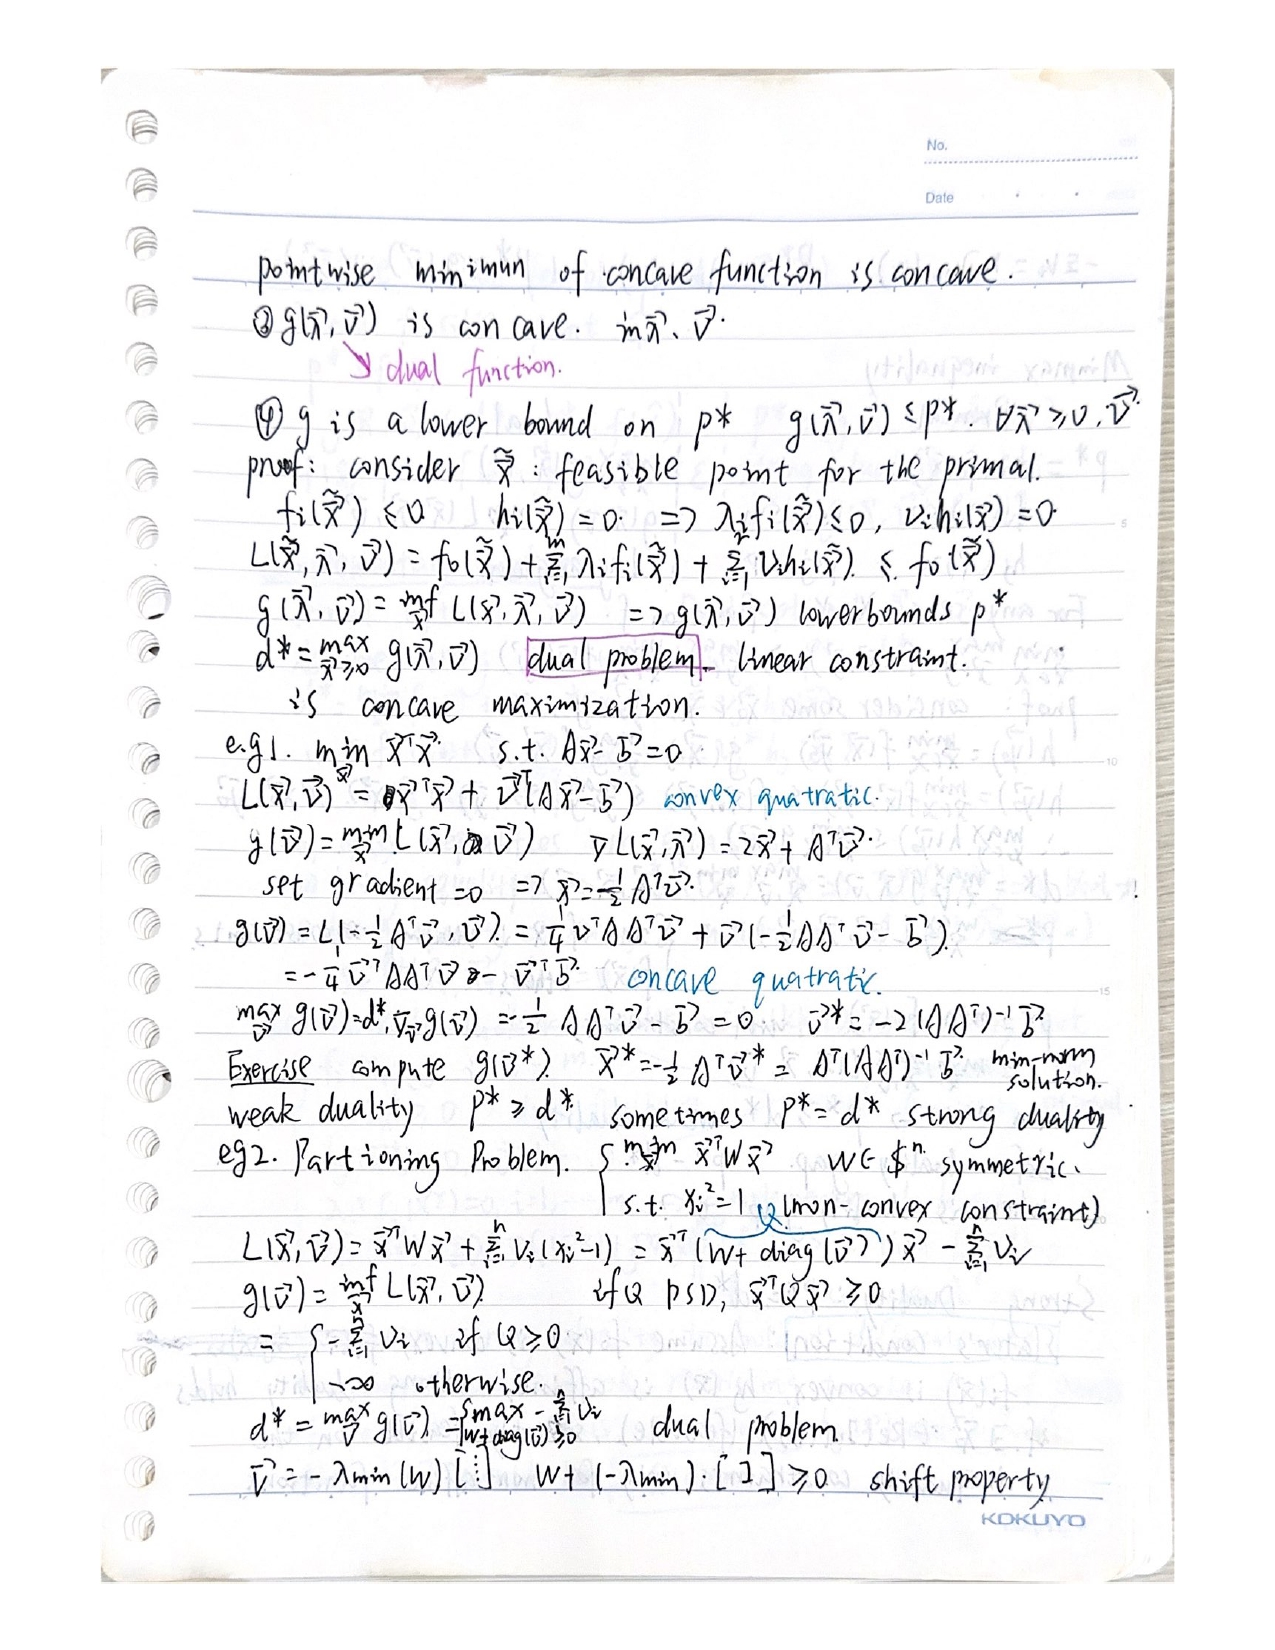 No.
Date
pointwise minimun of concave function is concave.
③ g(λ⃗, ν⃗) is concave. in λ⃗, ν⃗.
↘ dual function.
④ g is a lower bound on p* g(λ⃗, ν⃗) ≤ p*. ∀λ⃗ ≥ 0, ν⃗.
proof: consider x̃⃗ : feasible point for the primal.
fi(x̃⃗) ≤ 0 hi(x̃⃗) = 0. => λifi(x̃⃗) ≤ 0, νihi(x⃗) = 0
L(x̃⃗, λ⃗, ν⃗) = f0(x̃⃗) + Σ_{i=1}^{m} λifi(x̃⃗) + Σ_{i=1} νihi(x̃⃗). ≤ f0(x̃⃗)
g(λ⃗, ν⃗) = inf_{x⃗} L(x⃗, λ⃗, ν⃗) => g(λ⃗, ν⃗) lowerbounds p*
d* = max_{λ⃗≥0} g(λ⃗, ν⃗) dual problem. linear constraint.
is concave maximization.
e.g1. min_{x⃗} x⃗ᵀx⃗ s.t. Ax⃗ - b⃗ = 0
L(x⃗, ν⃗) = x⃗ᵀx⃗ + ν⃗ᵀ(Ax⃗ - b⃗) convex quatratic.
g(ν⃗) = min_{x⃗} L(x⃗, ν⃗) ∇L(x⃗, λ⃗) = 2x⃗ + Aᵀν⃗.
set gradient = 0 => x⃗ = -½Aᵀν⃗.
g(ν⃗) = L(-½Aᵀν⃗, ν⃗) = ¼ν⃗ᵀAAᵀν⃗ + ν⃗(-½AAᵀν⃗ - b⃗).
= -¼ν⃗ᵀAAᵀν⃗ - ν⃗ᵀb⃗. concave quatratic.
max_{ν⃗} g(ν⃗) = d*. ∇_{ν⃗}g(ν⃗) = -½AAᵀν⃗ - b⃗ = 0. ν⃗* = -2(AAᵀ)⁻¹b⃗
Exercise compute g(ν⃗*). x⃗* = -½Aᵀν⃗* = Aᵀ(AAᵀ)⁻¹b⃗. min-norm solution.
weak duality p* ≥ d*. sometimes p* = d* strong duality
eg2. Partioning Problem. { min_{x⃗} x⃗ᵀWx⃗ W∈$ⁿ. symmetric.
s.t. xi² = 1 (non-convex constraint)
Q
L(x⃗, ν⃗) = x⃗ᵀWx⃗ + Σ_{i=1}^{n} νi(xi²-1) = x⃗ᵀ(W + diag(ν⃗))x⃗ - Σ_{i=1}^{n} νi
g(ν⃗) = inf_{x⃗} L(x⃗, ν⃗). if Q PSD, x⃗ᵀQx⃗ ≥ 0
= { -Σ_{i=1}^{n} νi if Q ≥ 0.
-∞ otherwise.
d* = max_{ν⃗} g(ν⃗) = { max -Σ_{i=1}^{n} νi dual problem.
W + diag(ν⃗) ≥ 0
ν⃗ = -λmin(W)[⋮] W + (-λmin)·[I] ≥ 0 shift property
KOKUYO